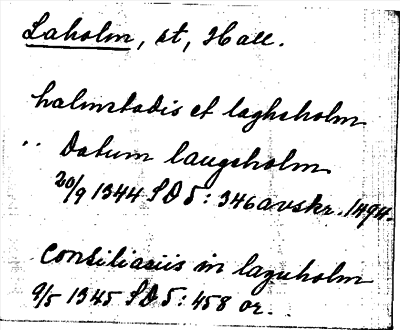 Laholm, st, Hall.
halmstadis et laghcholm
.. Datum laugeholm
20/9 1344 SD 5: 346 avskr. 1494.
Consiliariis in laguholm
9/5 1345 SD 5: 458 or.